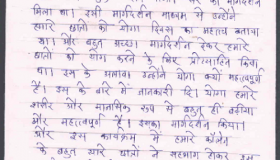 मिला था। इसी मार्गदर्शन माध्यम से उन्होंने
हमारे छात्रों को योगा दिवस का महत्व बताया
था। और बहुत अच्छा मार्गदर्शन देकर हमारे
छात्रों को योग करने के लिए प्रोत्साहित किया
था। इस के अलावा उन्होंने योगा क्यों महत्वपूर्ण
हैं। इस के बारे में जानकारी दि। योगा हमारे
शरीर और मानसिक रूप से बहुत ही बढ़िया
और महत्वपूर्ण हैं। इसका मार्गदर्शन किया।
और इस कार्यक्रम में हमारे कॉलेज
के बहुत सारे छात्रों ने सहभाग होकर इस